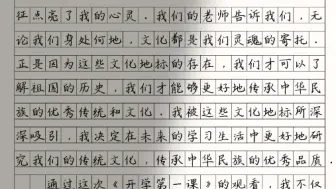 征点亮了我的心灵，我们的老师告诉我们，无
论我们身处何地，文化都是我们灵魂的寄托。
正是因为这些文化地标的存在，我们才可以了
解祖国的历史，我们才能够更好地传承中华民
族的优秀传统和文化，我被这些文化地标所深
深吸引，我决定在未来的学习生活中更好地研
究我们的传统文化，传承中华民族的优秀品质。
通过这次《开学第一课》的观看，我不仅